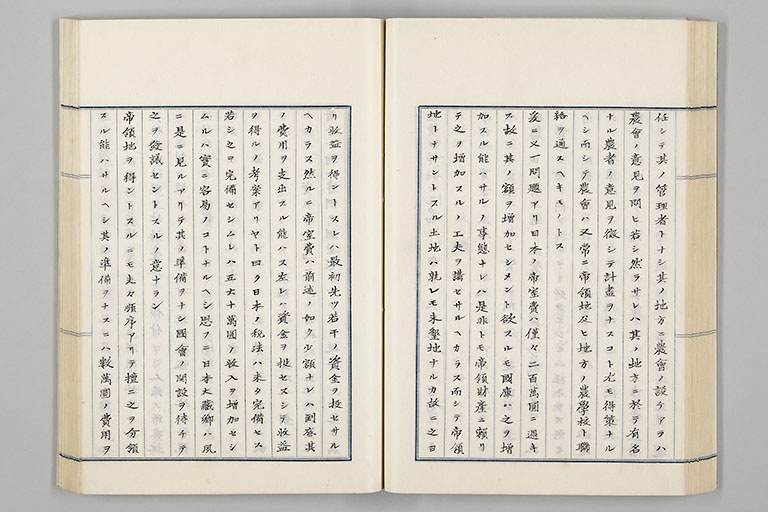 任シテ其ノ管理者トナシ其ノ地方ニ農會ノ設ケアラハ
農會ノ意見ヲ問ヒ若シ然ラサレハ其ノ地方ニ於テ有名
ナル農者ノ意見ヲ徴シテ計畫ヲナスコト尤モ得策ナル
ヘシ而シテ農會ハ又常ニ帝領地及ヒ地方ノ農學校ト聯
絡ヲ通スヘキモノトス
爰ニ又一問題アリ日本ノ帝室費ハ僅々二百萬圓ニ過キ
ス故ニ其ノ額ヲ増加セシメント欲スルモ國庫ハ之ヲ増
加スル能ハサルノ事態ナレハ是非トモ帝領財産ニ頼リ
テ之ヲ増加スルノ工夫ヲ講セサルヘカラス而シテ帝領
地トナサントスル土地ハ孰レモ未墾地ナルカ故ニ之ヨ
リ收益ヲ得ントスレハ最初先ツ若干ノ資金ヲ投セサル
ヘカラス然ルニ帝室費ハ前述ノ如ク少額ナレハ到底其
ノ費用ヲ支出スル能ハス左レハ資金ヲ投セスシテ收益
ヲ得ルノ考案アリヤト曰ク日本ノ税法ハ未タ完備セス
若シ之ヲ完備セシムレハ五六十萬圓ノ收入ヲ増加セシ
ムルハ實ニ容易ノコトナルヘシ思フニ日本大藏卿ハ夙
ニ是ニ見ルアリテ其ノ準備ヲナシ國會ノ開設ヲ待チテ
之ヲ發議セントスルノ意ナラン
帝領地ヲ得ントスルニモ夫々順序アリテ擅ニ之ヲ分領
スル能ハサルヘシ其ノ準備ヲナスニハ數萬圓ノ費用ヲ